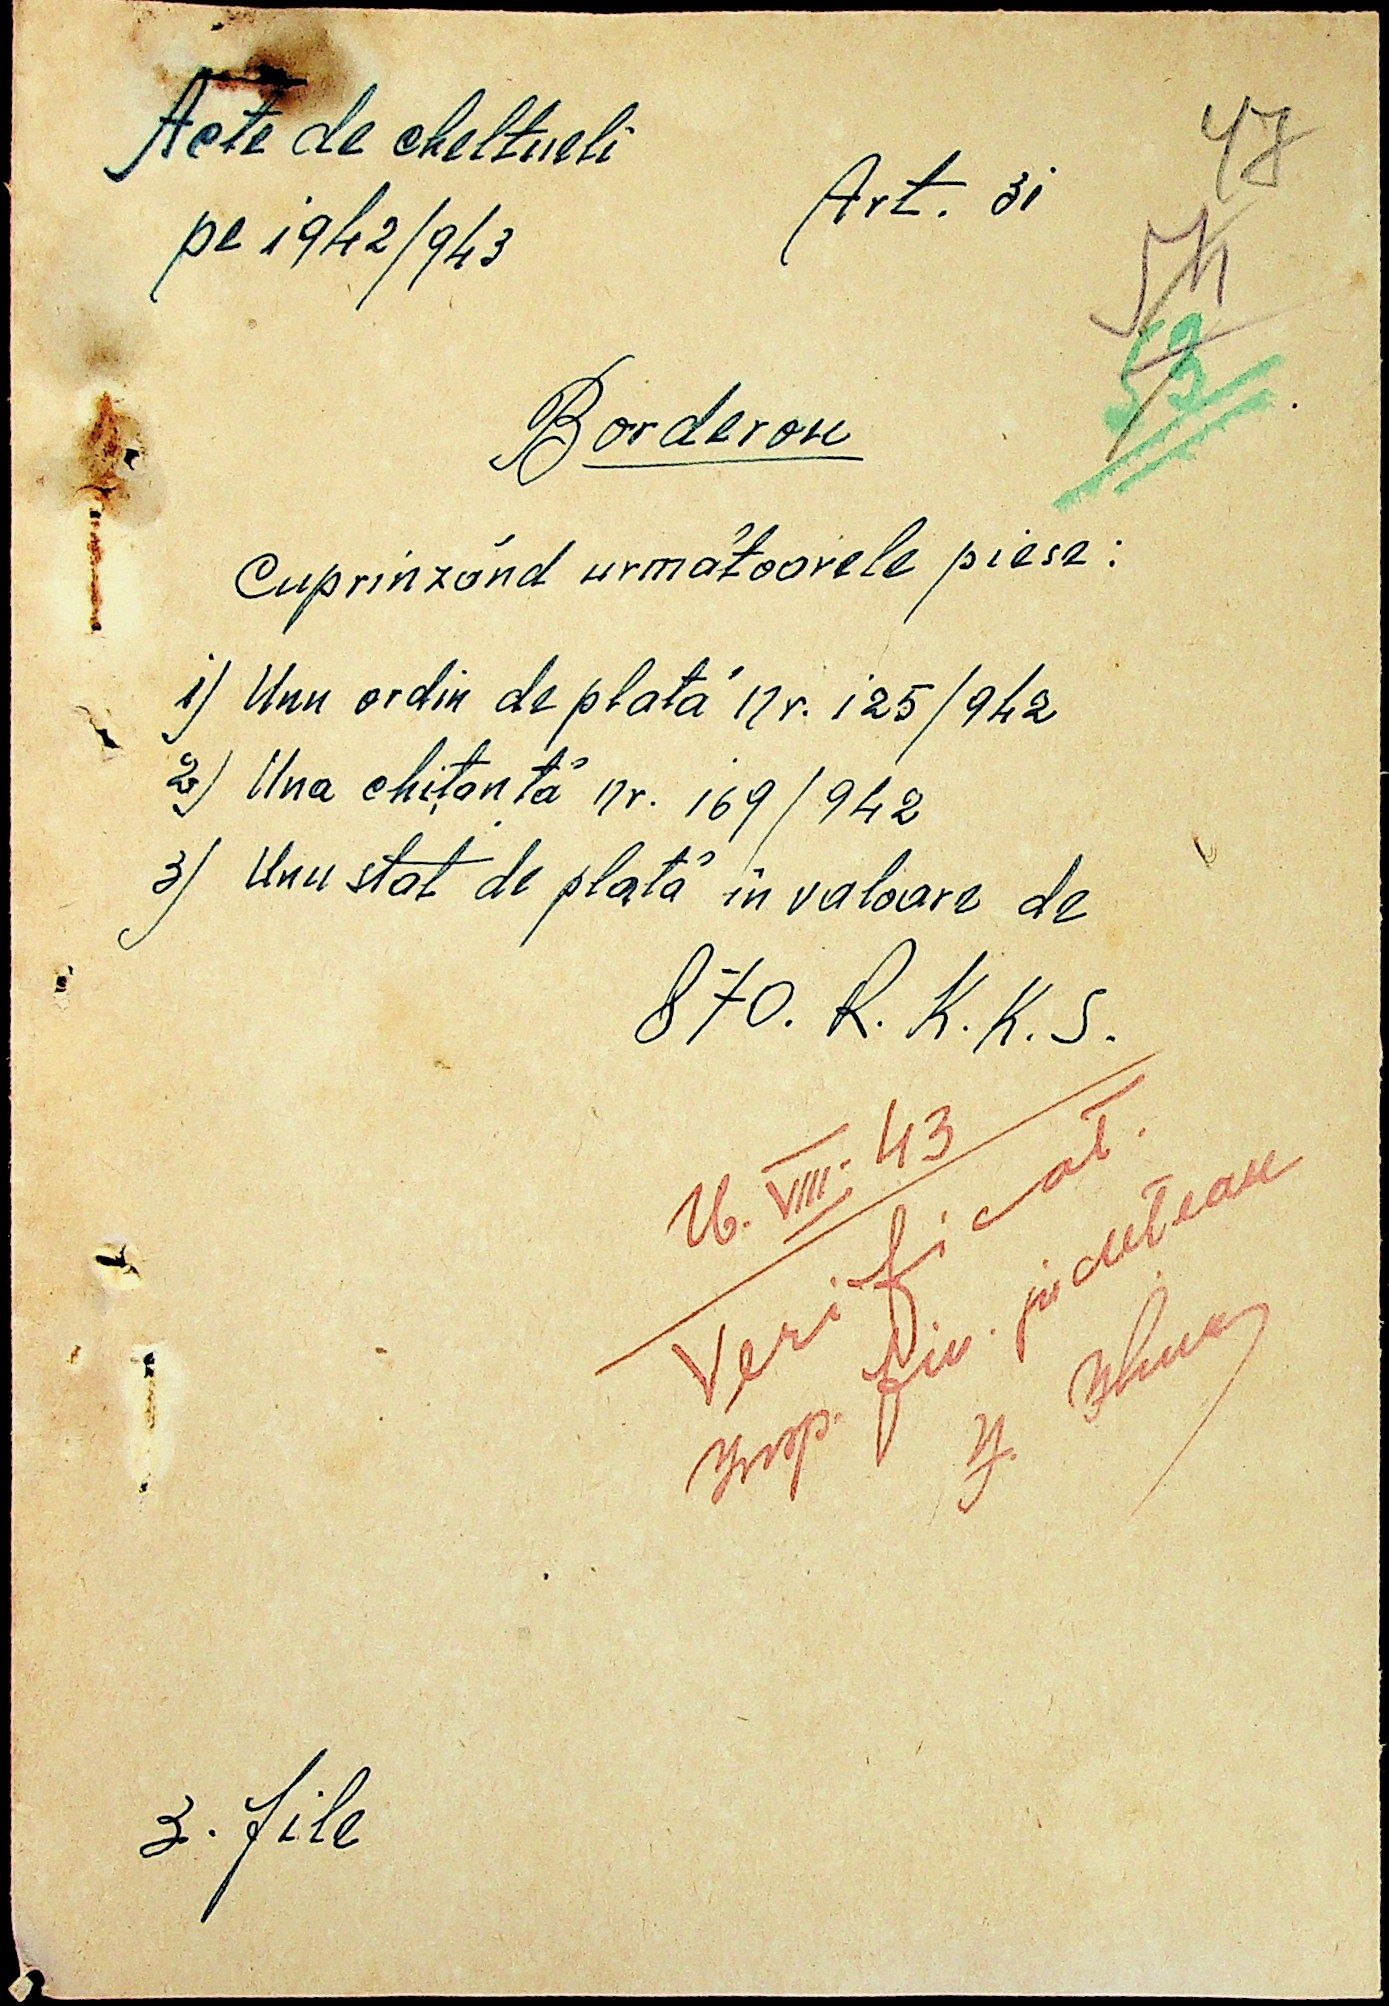 Acte de cheltueli
pe 1942/943
Art. 31
47
53
Borderou
Cuprinzând următoarele piese:
1) Unu ordin de plată nr. 125/942
2) Una chițanță nr. 169/942
3) Unu stat de plată în valoare de
870. R. K. K. S.
VIII. 43
Verificat.
Insp. fin. județean
3. file